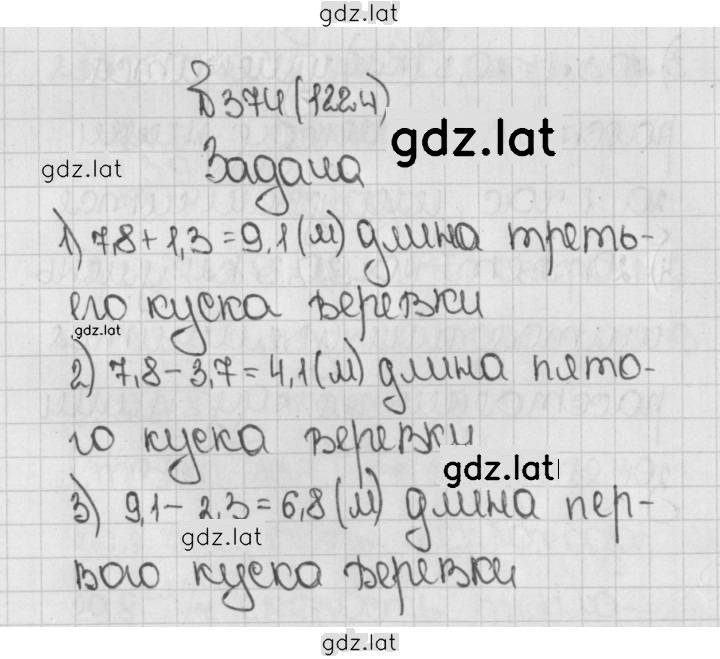 gdz.lat
В 374 (1224)
gdz.lat
gdz.lat
Задача
1) 7,8 + 1,3 = 9,1 (м) длина треть-
его куска веревки
gdz.lat
2) 7,8 - 3,7 = 4,1 (м) длина пято-
го куска веревки
gdz.lat
3) 9,1 - 2,3 = 6,8 (м) длина пер-
gdz.lat
вого куска веревки
gdz.lat